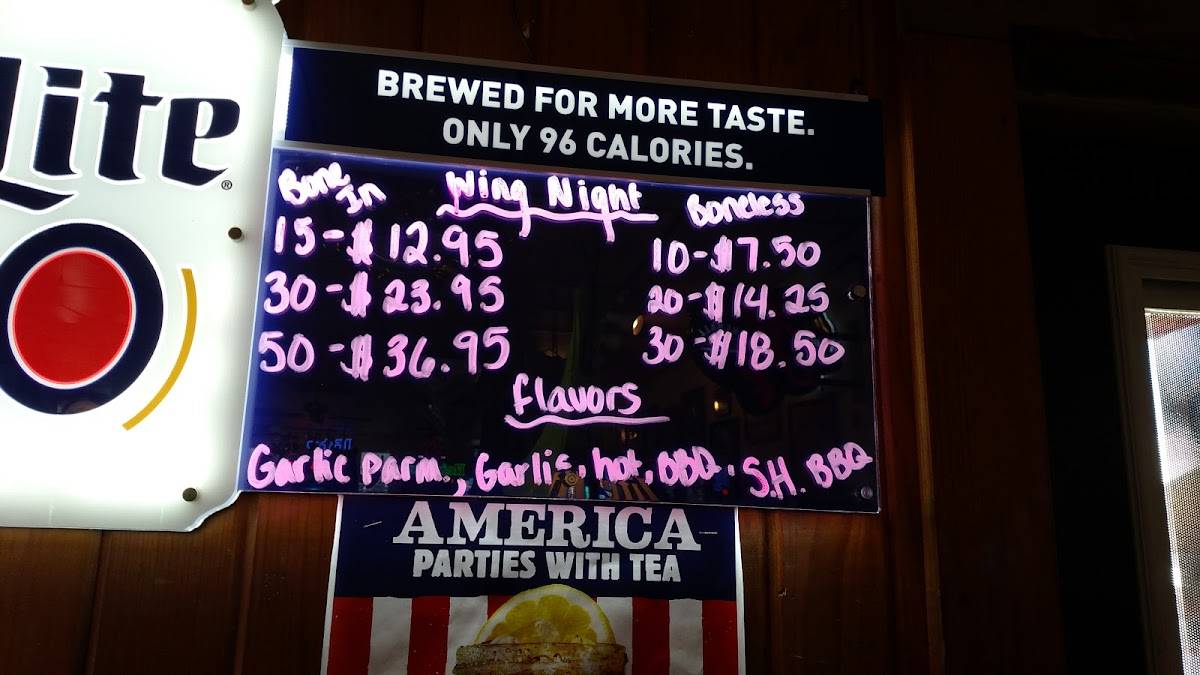 Lite ®
BREWED FOR MORE TASTE.
ONLY 96 CALORIES.
Bone In
Wing Night
Boneless
15-$12.95
10-$7.50
30-$23.95
20-$14.25
50-$36.95
30-$18.50
flavors
Garlic Parm., Garlic, hot, BBQ, S.H. BBQ
AMERICA
PARTIES WITH TEA